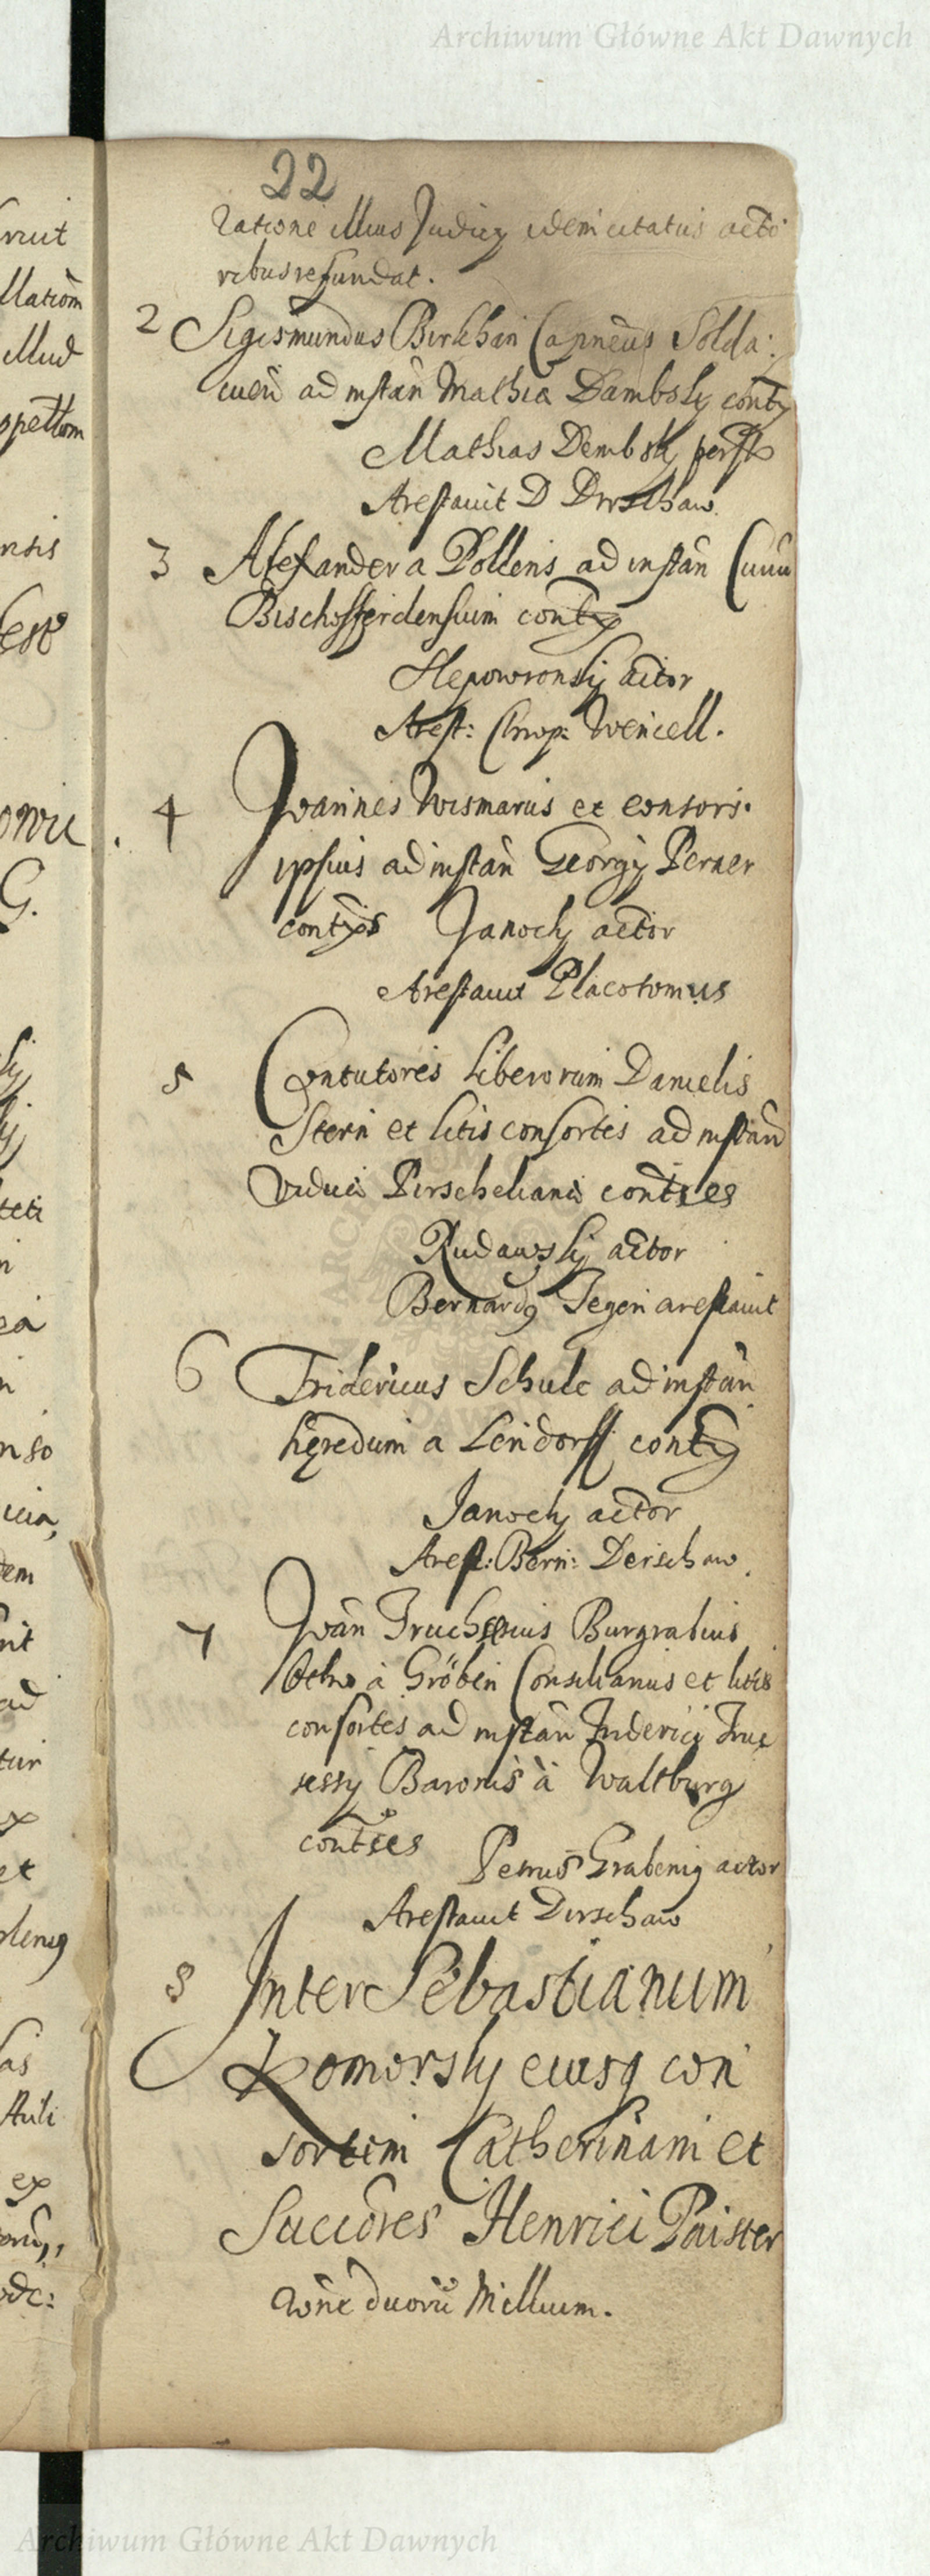 Archiwum Główne Akt Dawnych
22
ratione illius Judicy idem citatus acto
ribus refundat.
2 Sigismundus Birkhan Capneus Solda:
cuen ad instan Mathia Dambsky contx
Mathias Dembsky perst
Arestauit D Drrschaw
3 Alexander a Pollens ad instan Cuuu
Bischoffferdensium contx
Slepowronsky actor
Arest: Chrop: Wencell.
4 Joannes Wismarus et consors.
ipsius ad instan Georgy Perner
contxs Janocky actor
Arestauit Placotomus
5 Contutores liberorum Danielis
Stern et litis consortes ad instan
Viduæ Perscheliana contses
Rudawsky actor
Bernardg Tegen arestauit
6 Fridericus Schulc ad instan
hęredum a Lendorff contx
Janocky actor
Arest: Bern: Derschaw
7 Joan Truchsesius Burgrabius
Otho à Gröben Consiliarius et litis
consortes ad instan Friderici Truc
sessy Baronis à Waltburg
contses Petrus Grabenig actor
Arestauit Derschaw
8 Inter Sebastianum
Komorsky eiusq con
sortem Catherinam et
Succores Henrici Paister
aône duorũ Millium.
ruit
llatiom
illud
nsis
est
G.
teti
n
ea
nso
icia,
dem
nit
ad
tur
et
as
ex
Archiwum Główne Akt Dawnych